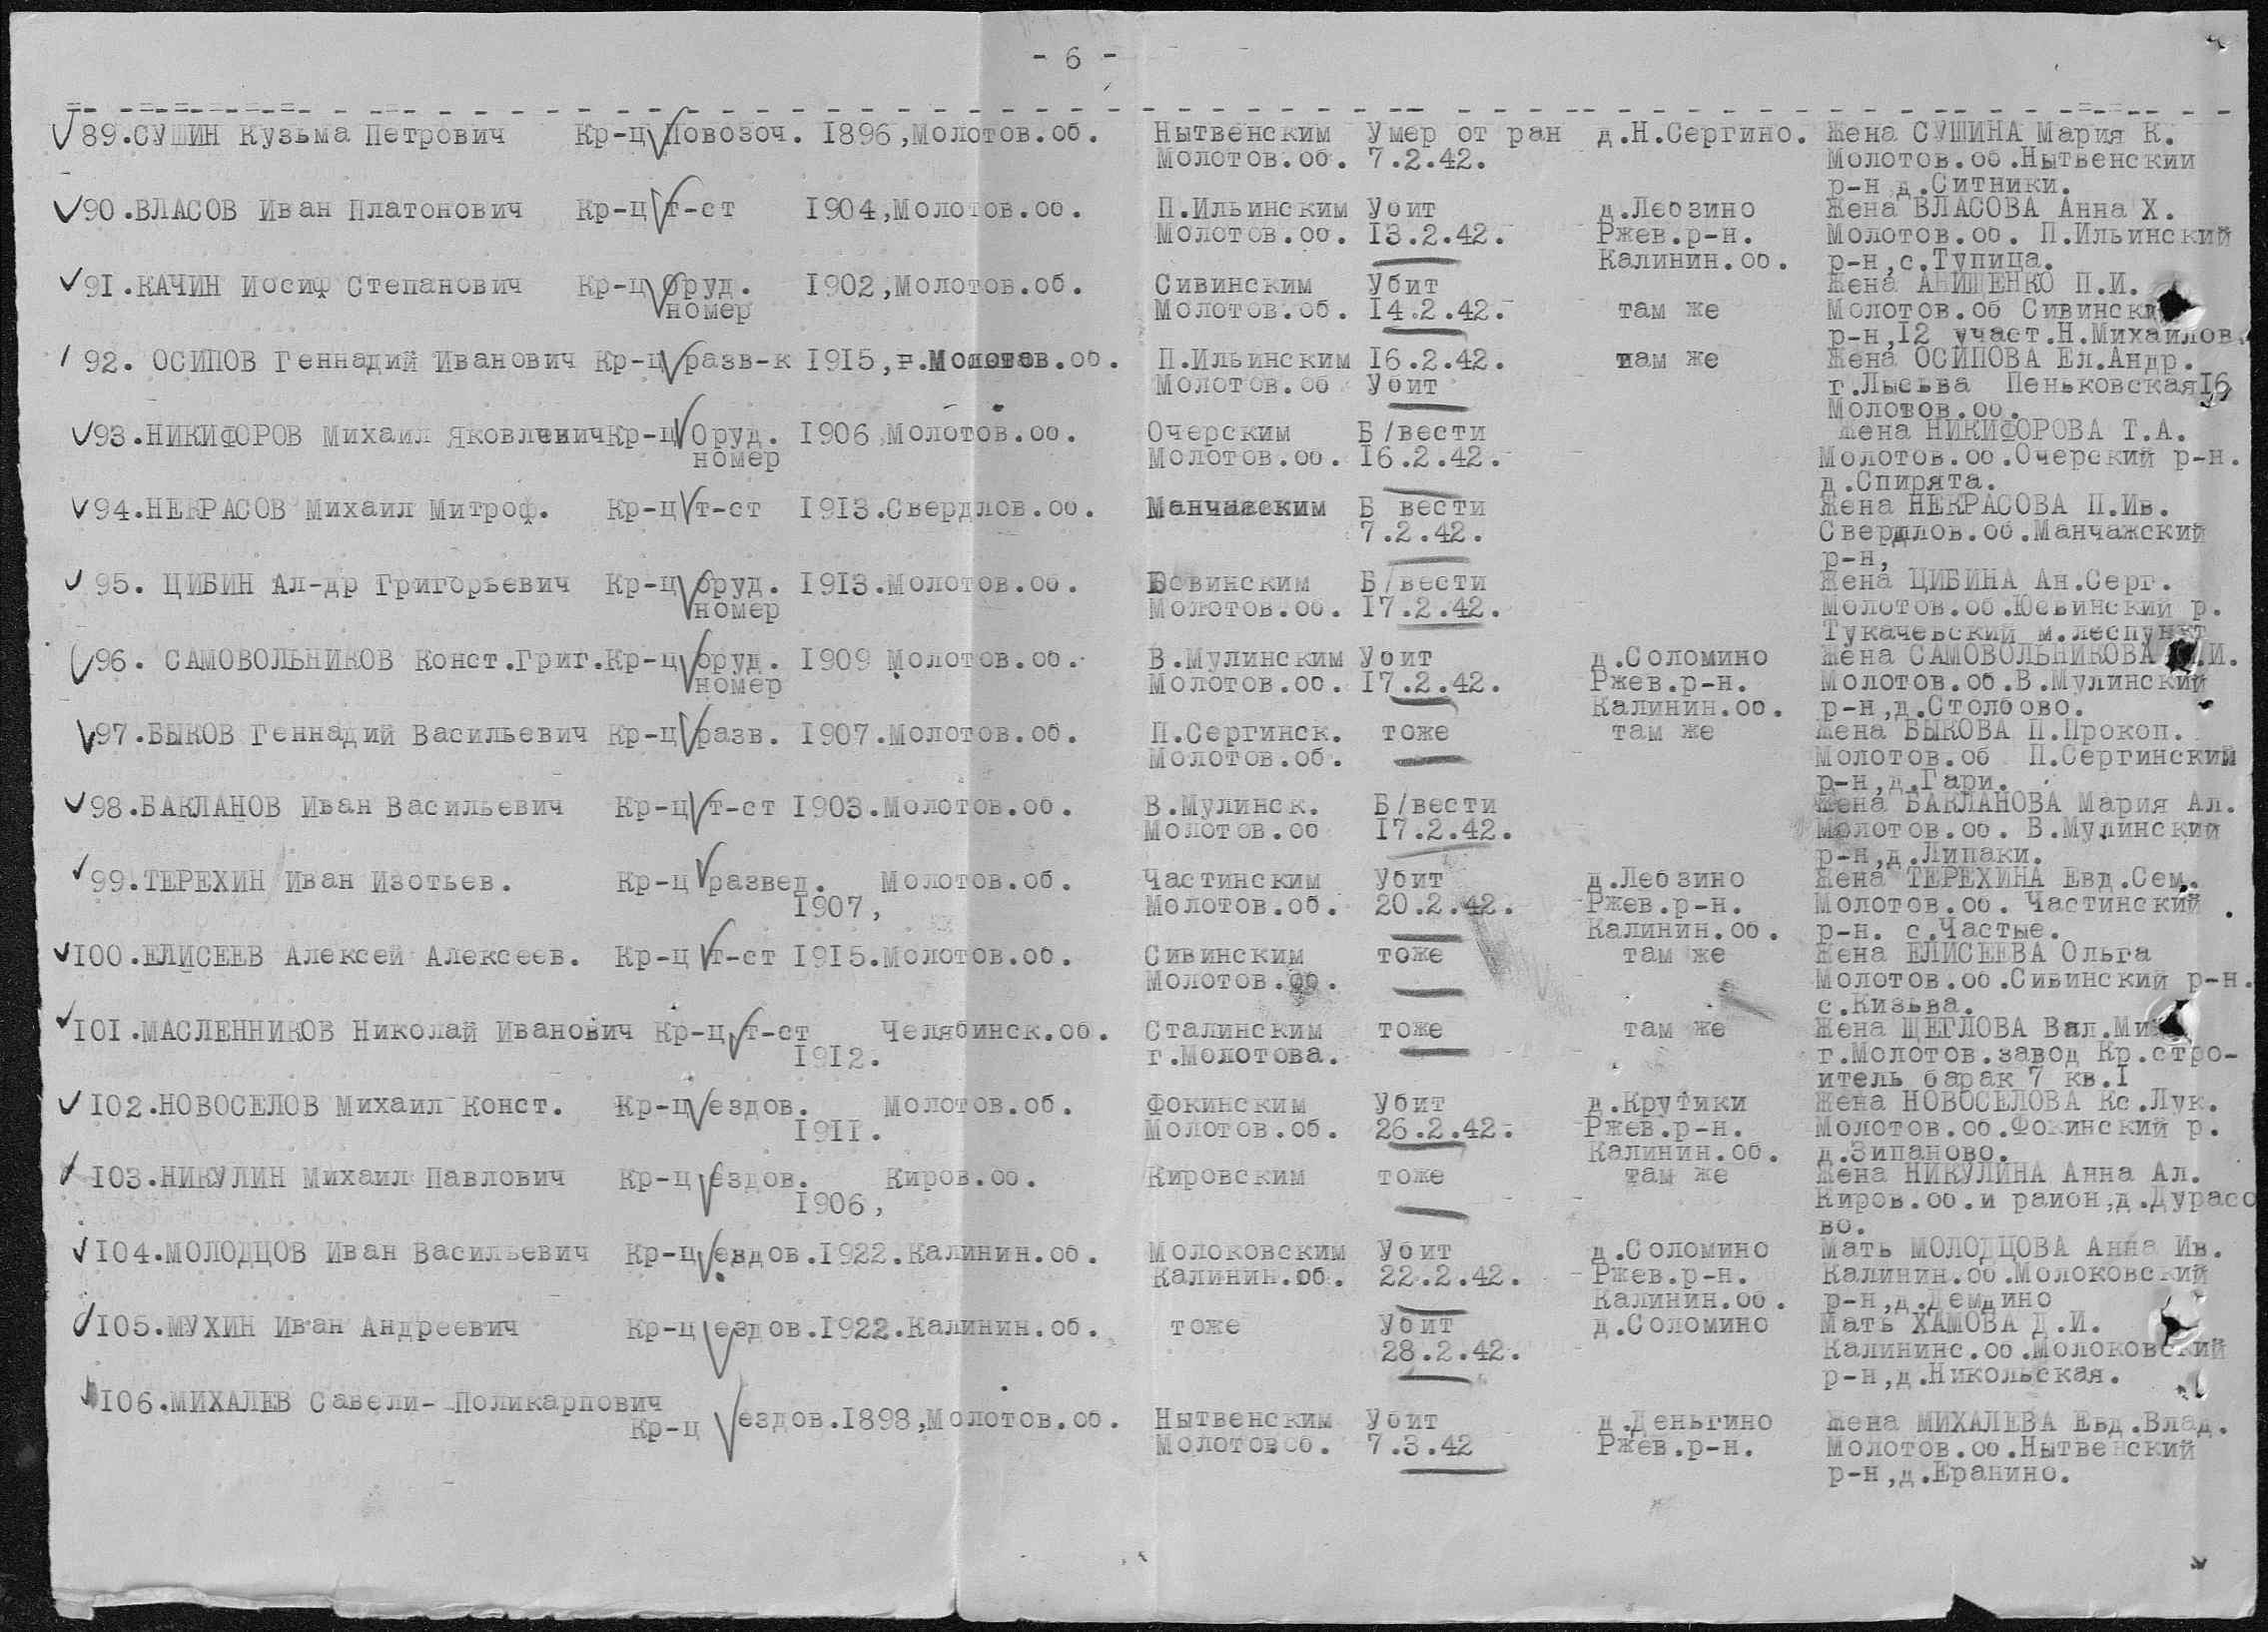 - 6 -
89.СУШИН Кузьма Петрович Кр-ц Повозоч. 1896,Молотов.об. Нытвенским Умер от ран д.Н.Сергино. Жена СУШИНА Мария К.
Молотов.об. 7.2.42. Молотов.об.Нытвенский
р-н д.Ситники.
90.ВЛАСОВ Иван Платонович Кр-ц т-ст 1904,Молотов.об. П.Ильинским Убит д.Лебзино Жена ВЛАСОВА Анна Х.
Молотов.об. 13.2.42. Ржев.р-н. Молотов.об. П.Ильинский
Калинин.об. р-н,с.Тупица.
91.КАЧИН Иосиф Степанович Кр-ц оруд. 1902,Молотов.об. Сивинским Убит Жена АНИЩЕНКО П.И.
номер Молотов.об. 14.2.42. там же Молотов.об Сивински
р-н,12 участ.Н.Михайлов.
92. ОСИПОВ Геннадий Иванович Кр-ц разв-к 1915,г.Молотов.об. П.Ильинским 16.2.42. там же Жена ОСИПОВА Ел.Андр.
Молотов.об Убит г.Лысьва Пеньковская16
Молотов.об.
93.НИКИФОРОВ Михаил Яковлевич Кр-ц Оруд. 1906 Молотов.об. Очерским Б/вести Жена НИКИФОРОВА Т.А.
номер Молотов.об. 16.2.42. Молотов.об.Очерский р-н.
д.Спирята.
94.НЕКРАСОВ Михаил Митроф. Кр-ц т-ст 1913.Свердлов.об. Манчаским Б вести Жена НЕКРАСОВА П.Ив.
7.2.42. Свердлов.об.Манчажский
р-н,
95. ЦИБИН Ал-др Григорьевич Кр-ц оруд. 1913.Молотов.об. Б/вести Жена ЦИБИНА Ан.Серг.
номер Молотов.об. 17.2.42. Молотов.об.Юсвинский р.
Тукачевский м.леспункт
96. САМОВОЛЬНИКОВ Конст.Григ.Кр-ц оруд. 1909 Молотов.об. В.Мулинским Убит д.Соломино Жена САМОВОЛЬНИКОВА И.
номер Молотов.об. 17.2.42. Ржев.р-н. Молотов.об.В.Мулинский
Калинин.об. р-н,д.Столбово.
97.БЫКОВ Геннадий Васильевич Кр-ц разв. 1907.Молотов.об. П.Сергинск. тоже там же Жена БЫКОВА П.Прокоп.
Молотов.об. Молотов.об П.Сергинский
р-н,д.Гари.
98.БАКЛАНОВ Иван Васильевич Кр-ц т-ст 1903.Молотов.об. В.Мулинск. Б/вести Жена БАКЛАНОВА Мария Ал.
Молотов.об 17.2.42. Молотов.об. В.Мулинский
р-н,д.Липаки.
99.ТЕРЕХИН Иван Изотьев. Кр-ц развед. Молотов.об. Частинским Убит д.Лебзино Жена ТЕРЕХИНА Евд.Сем.
1907, Молотов.об. 20.2.42. Ржев.р-н. Молотов.об. Частинский.
Калинин.об. р-н. с.Частые.
100.ЕЛИСЕЕВ Алексей Алексеев. Кр-ц т-ст 1915.Молотов.об. Сивинским тоже там же Жена ЕЛИСЕЕВА Ольга
Молотов.об. Молотов.об.Сивинский р-н.
с.Кизьва.
101.МАСЛЕННИКОВ Николай Иванович Кр-ц т-ст Челябинск.об. Сталинским тоже там же Жена ЩЕГЛОВА Вал.Ми
1912. г.Молотова. г.Молотов.завод Кр.стро-
итель барак 7 кв.1
102.НОВОСЕЛОВ Михаил Конст. Кр-ц ездов. Молотов.об. Фокинским Убит д.Крутики Жена НОВОСЕЛОВА Кс.Лук.
1911. Молотов.об. 26.2.42. Ржев.р-н. Молотов.об.Фокинский р.
Калинин.об. д.Зипаново.
103.НИКУЛИН Михаил Павлович Кр-ц ездов. Киров.об. Кировским тоже там же Жена НИКУЛИНА Анна Ал.
1906, Киров.об.и район,д.Дурасо
во.
104.МОЛОДЦОВ Иван Васильевич Кр-ц ездов.1922.Калинин.об. Молоковским Убит д.Соломино Мать МОЛОДЦОВА Анна Ив.
Калинин.об. 22.2.42. Ржев.р-н. Калинин.об.Молоковский
Калинин.об. р-н,д.Демдино
105.МУХИН Иван Андреевич Кр-ц ездов.1922.Калинин.об. тоже Убит д.Соломино Мать ХАМОВА Д.И.
28.2.42. Калининс.об.Молоковский
р-н,д.Никольская.
106.МИХАЛЕВ Савели- Поликарпович
Кр-ц ездов.1898,Молотов.об. Нытвенским Убит д.Деньгино Жена МИХАЛЕВА Евд.Влад.
Молотовоб. 7.3.42 Ржев.р-н. Молотов.об.Нытвенский
р-н,д.Еранино.